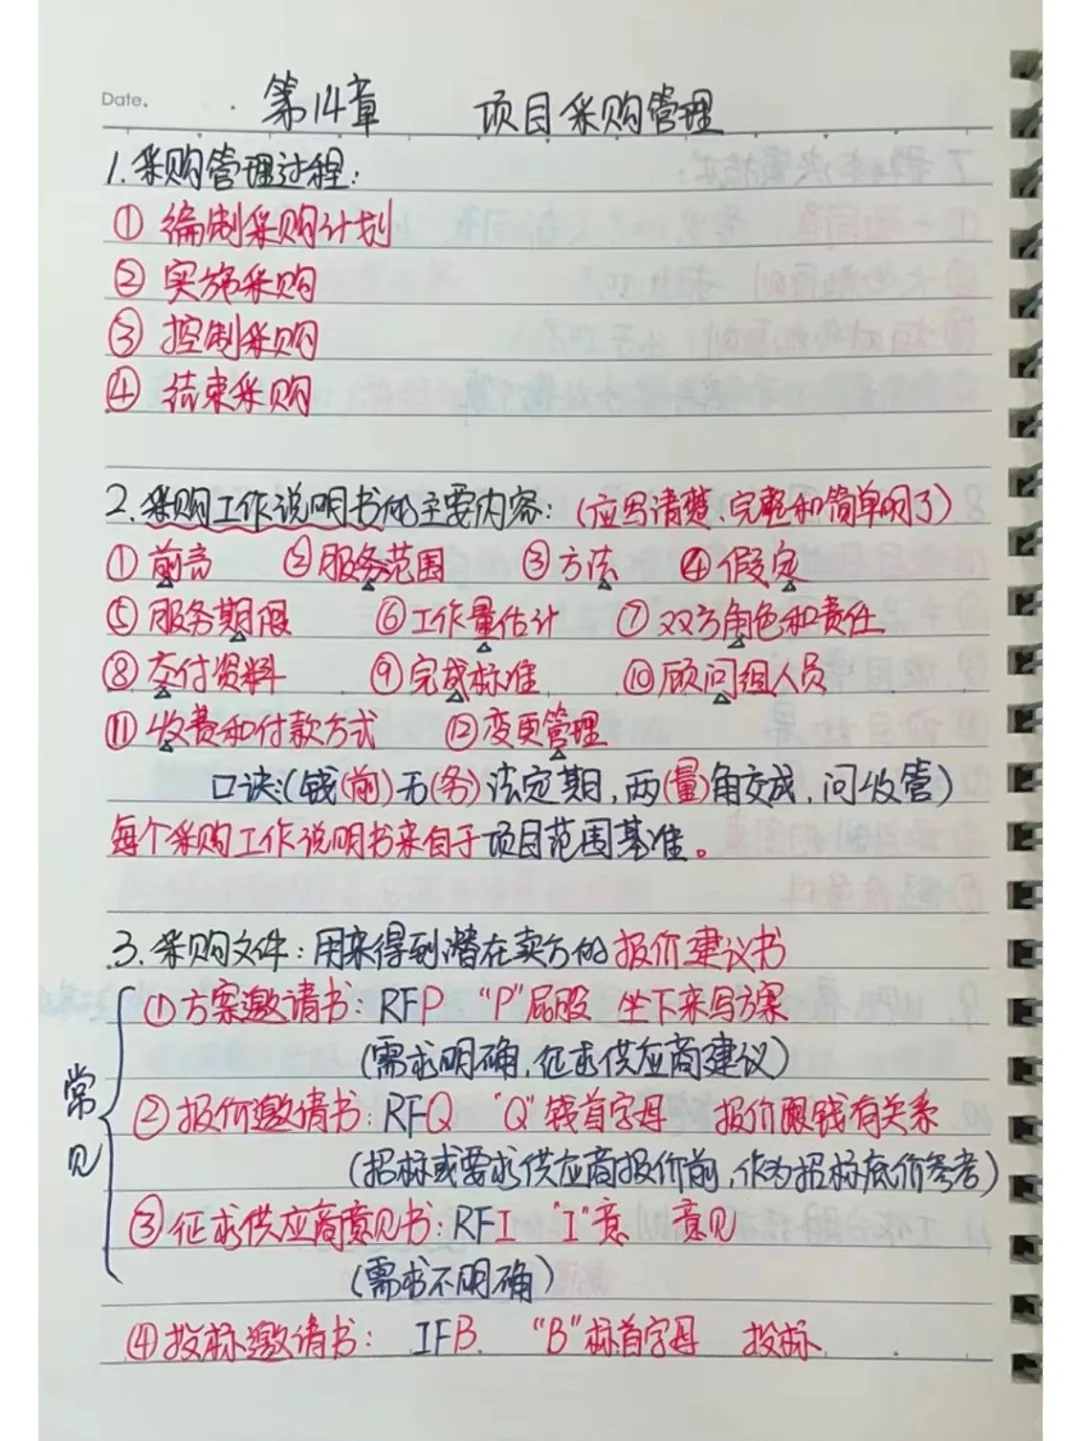 Date.
第14章 项目采购管理
1.采购管理过程:
① 编制采购计划
② 实施采购
③ 控制采购
④ 结束采购
2.采购工作说明书的主要内容:(应写清楚、完整和简单明了)
① 前言 ②服务范围 ③方法 ④假定
⑤服务期限 ⑥工作量估计 ⑦双方角色和责任
⑧交付资料 ⑨完成标准 ⑩顾问组人员
⑪收费和付款方式 ⑫变更管理
口诀:(钱(前)无(务)法定期,两(量)角交成,问收管)
每个采购工作说明书来自于项目范围基准。
3.采购文件:用来得到潜在卖方的报价建议书
常见
①方案邀请书:RFP "P"屁股 坐下来写方案
(需求明确,征求供应商建议)
②报价邀请书:RFQ "Q"钱首字母 报价跟钱有关系
(招标或要求供应商报价前,作为招标底价参考)
③征求供应商意见书:RFI "I"意 意见
(需求不明确)
④投标邀请书: IFB "B"标首字母 投标